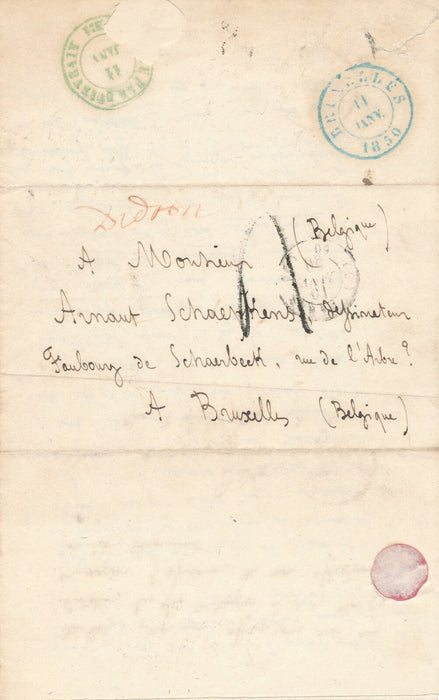 11
JANV
BRUXELLES
11
JANV.
1850
Didron
(Belgique)
A Monsieur
Arnaut Schaerkens
Faubourg de Schaerbeek, rue de l'Arbre ?
A Bruxelles (Belgique)